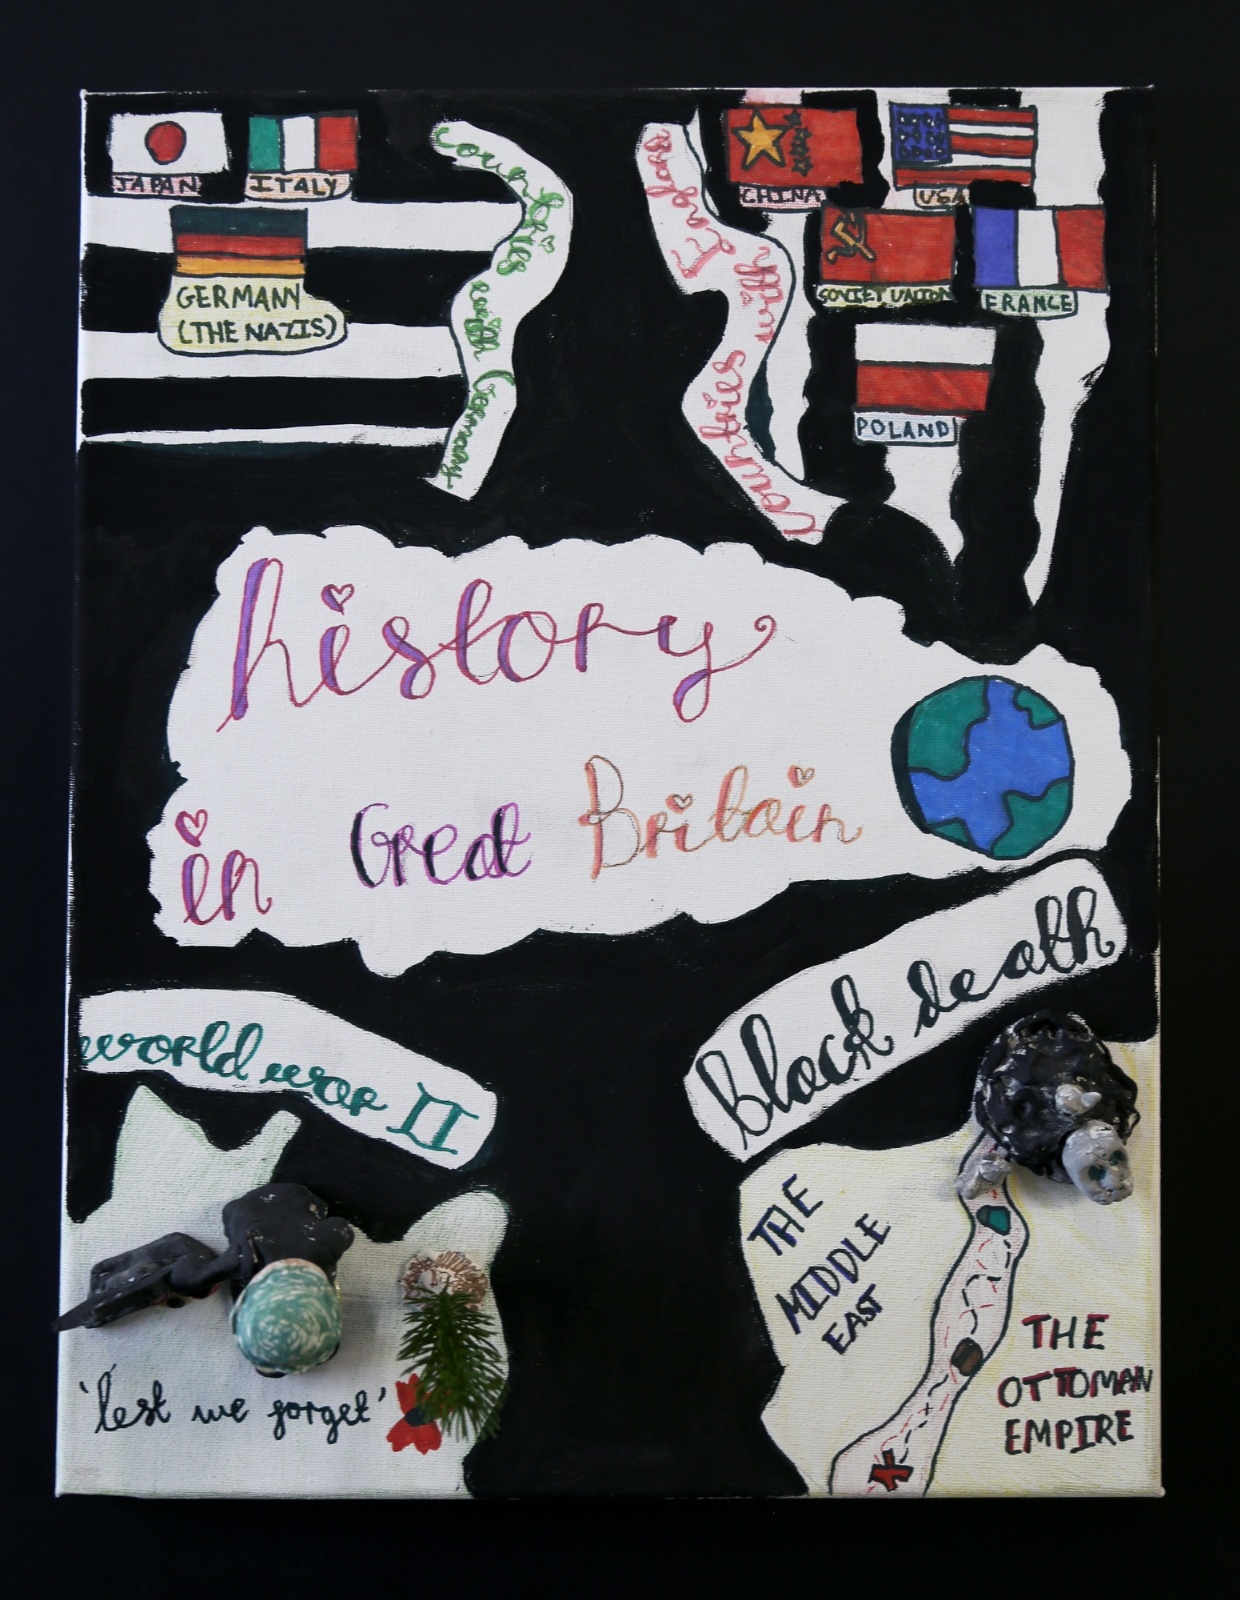 JAPAN
ITALY
GERMANY
(THE NAZIS)
countries with Germany
Countries with England
CHINA
USA
SOVIET UNION
FRANCE
POLAND
history
in Great Britain
world war II
Black death
'lest we forget'
THE
MIDDLE
EAST
THE
OTTOMAN
EMPIRE